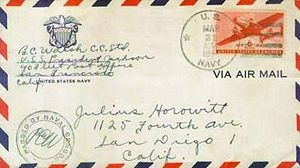 B.C. Walsh C.C. Std.
U.S.S. President Jackson
℅ Fleet Post Office
San Francisco
Calif.
UNITED STATES NAVY
U.S.
MAR
NAVY
UNITED STATES OF AMERICA
VIA AIR MAIL
PASSED BY NAVAL CENSOR
Julius Horowitt
1125 Fourth ave.
San Diego 1
Calif.